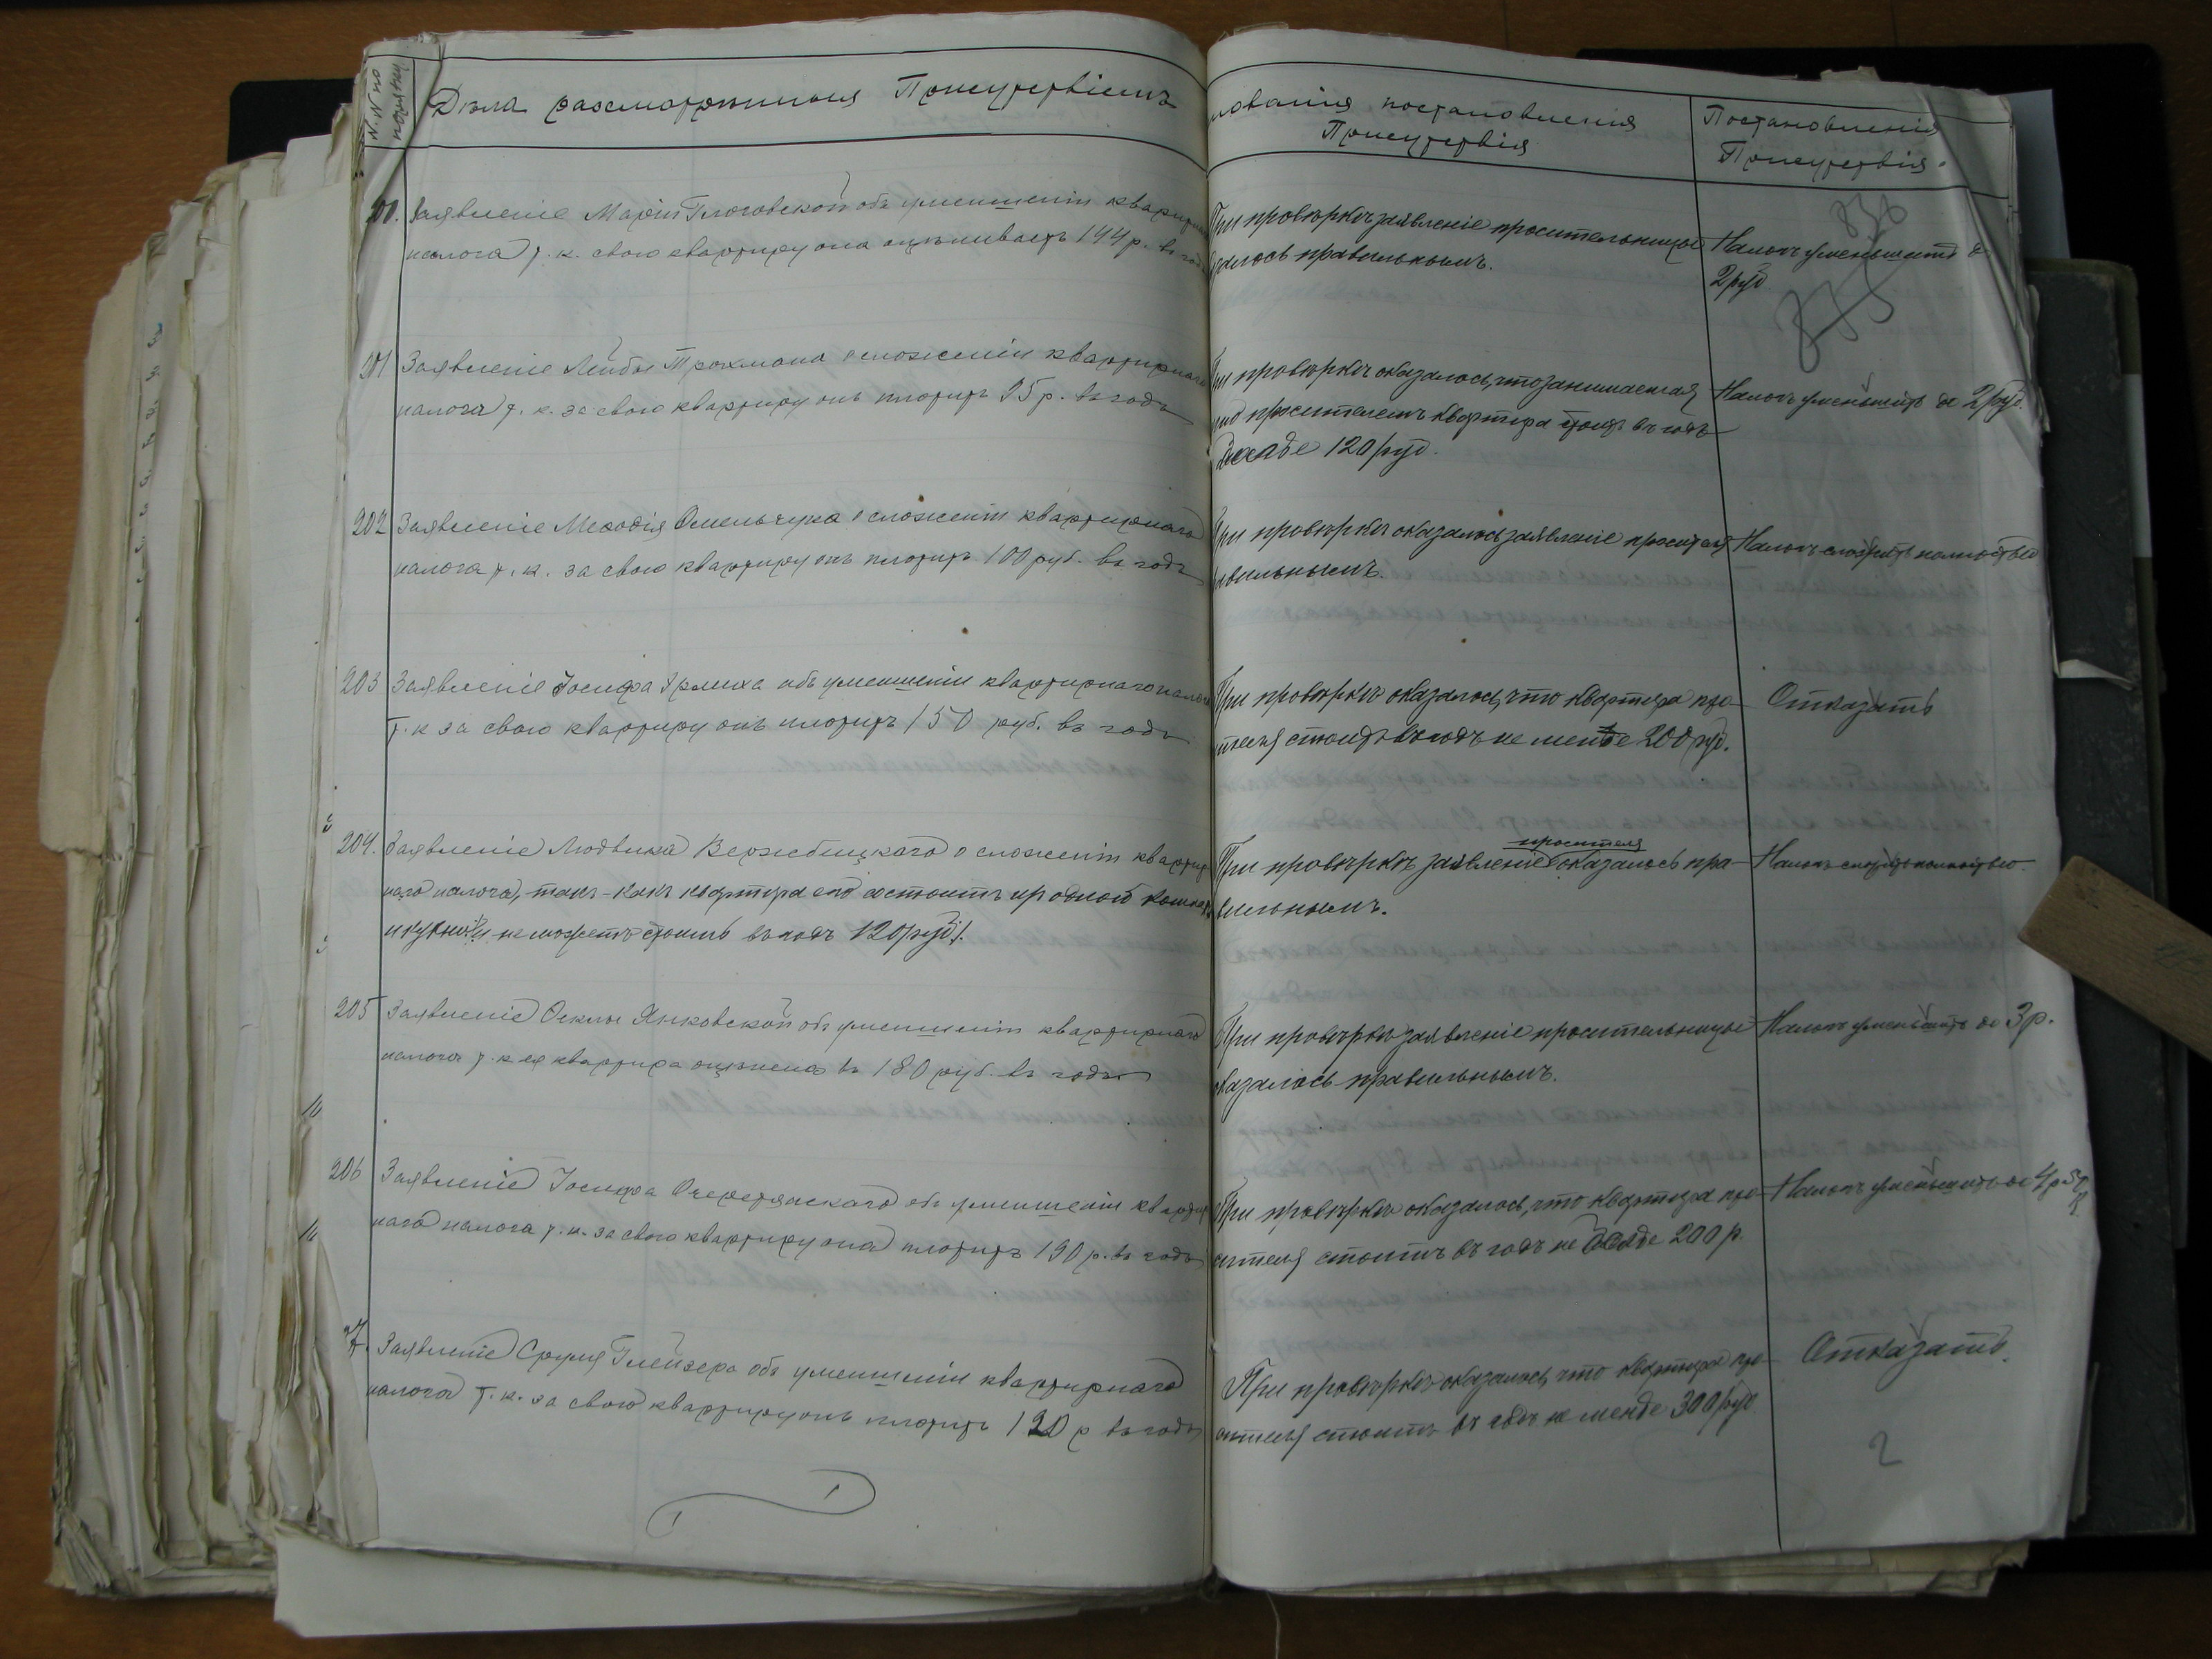 №№ по порядку
Дѣла разсмотрѣнныя Присутствіемъ
нованія постановленія
Присутствія
Постановленія
Присутствія.
836
835
200. Заявленіе Маріи Глоговской объ уменшеніи квартирн
налога т. к. свою квартиру она оцѣниваетъ 144 р. въ годъ
При провѣркѣ заявленіе просительницы
залось правильнымъ.
Налогъ уменьшить до
2 руб.
201 Заявленіе Лейбы Трохмана о сложеніи квартирнаго
налога т. к. за свою квартиру онъ платитъ 95 р. въ годъ
При провѣркѣ оказалось, что занимаемая
просителемъ квартира стоитъ въ годъ
120 руб.
Налогъ уменьшить до 2 руб.
202 Заявленіе Мефодія Омельчука о сложеніи квартирнаго
налога т. к. за свою квартиру онъ платитъ 100 руб. въ годъ
При провѣркѣ оказалось заявленіе просителя
вильнымъ.
Налогъ сложить полностью
203 Заявленіе Іосифа Ярлиха объ уменшеніи квартирнаго налога
т. к за свою квартиру онъ платитъ 150 руб. въ годъ
При провѣркѣ оказалось, что квартира про-
сителя стоитъ въ годъ не менѣе 200 руб.
Отказать
204. Заявленіе Людвика Вержбицкаго о сложеніи квартир
наго налога, такъ-какъ квартира его состоитъ изъ одной комнаты
и кухни и не можетъ стоить въ годъ 120 руб.
просителя
При провѣркѣ заявленіе оказалось пра-
вильнымъ.
Налогъ сложить полностью
205 Заявленіе Феклы Янковской объ уменшеніи квартирнаго
налога т. к. ея квартира оцѣнена въ 180 руб. въ годъ
При провѣркѣ заявленіе просительницы
оказалось правильнымъ.
Налогъ уменьшить до 3 р.
206 Заявленіе Іосифа Очеретянскаго объ уменшеніи квартир
наго налога т. к. за свою квартиру онъ платитъ 190 р. въ годъ
При провѣркѣ оказалось, что квартира про-
сителя стоитъ въ годъ не болѣе 200 р.
Налогъ уменьшить до 4 р 50 к
7. Заявленіе Сруля Глейзера объ уменшеніи квартирнаго
налога т. к. за свою квартиру онъ платитъ 120 р въ годъ
При провѣркѣ оказалось, что квартира про-
сителя стоитъ въ годъ не менѣе 300 руб
Отказать.
2